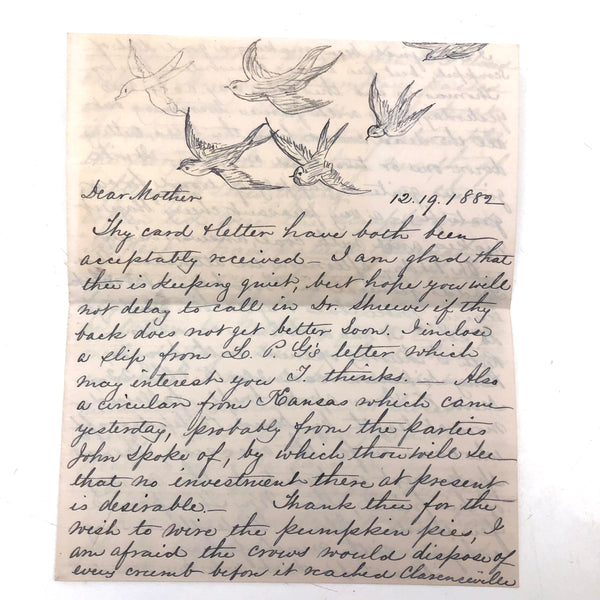 Dear Mother 12.19.1882
Thy card & letter have both been
acceptably received – I am glad that
thee is keeping quiet, but hope you will
not delay to call in Dr. Shreive if thy
back does not get better soon. I inclose
a slip from L. P. G's letter which
may interest you T. thinks. – Also
a circular from Kansas which came
yesterday, probably from the parties
John spoke of, by which thou will see
that no investment there at present
is desirable – Thank thee for the
wish to wire the pumpkin pies, I
am afraid the crows would dispose of
every crumb before it reached Clarenceville